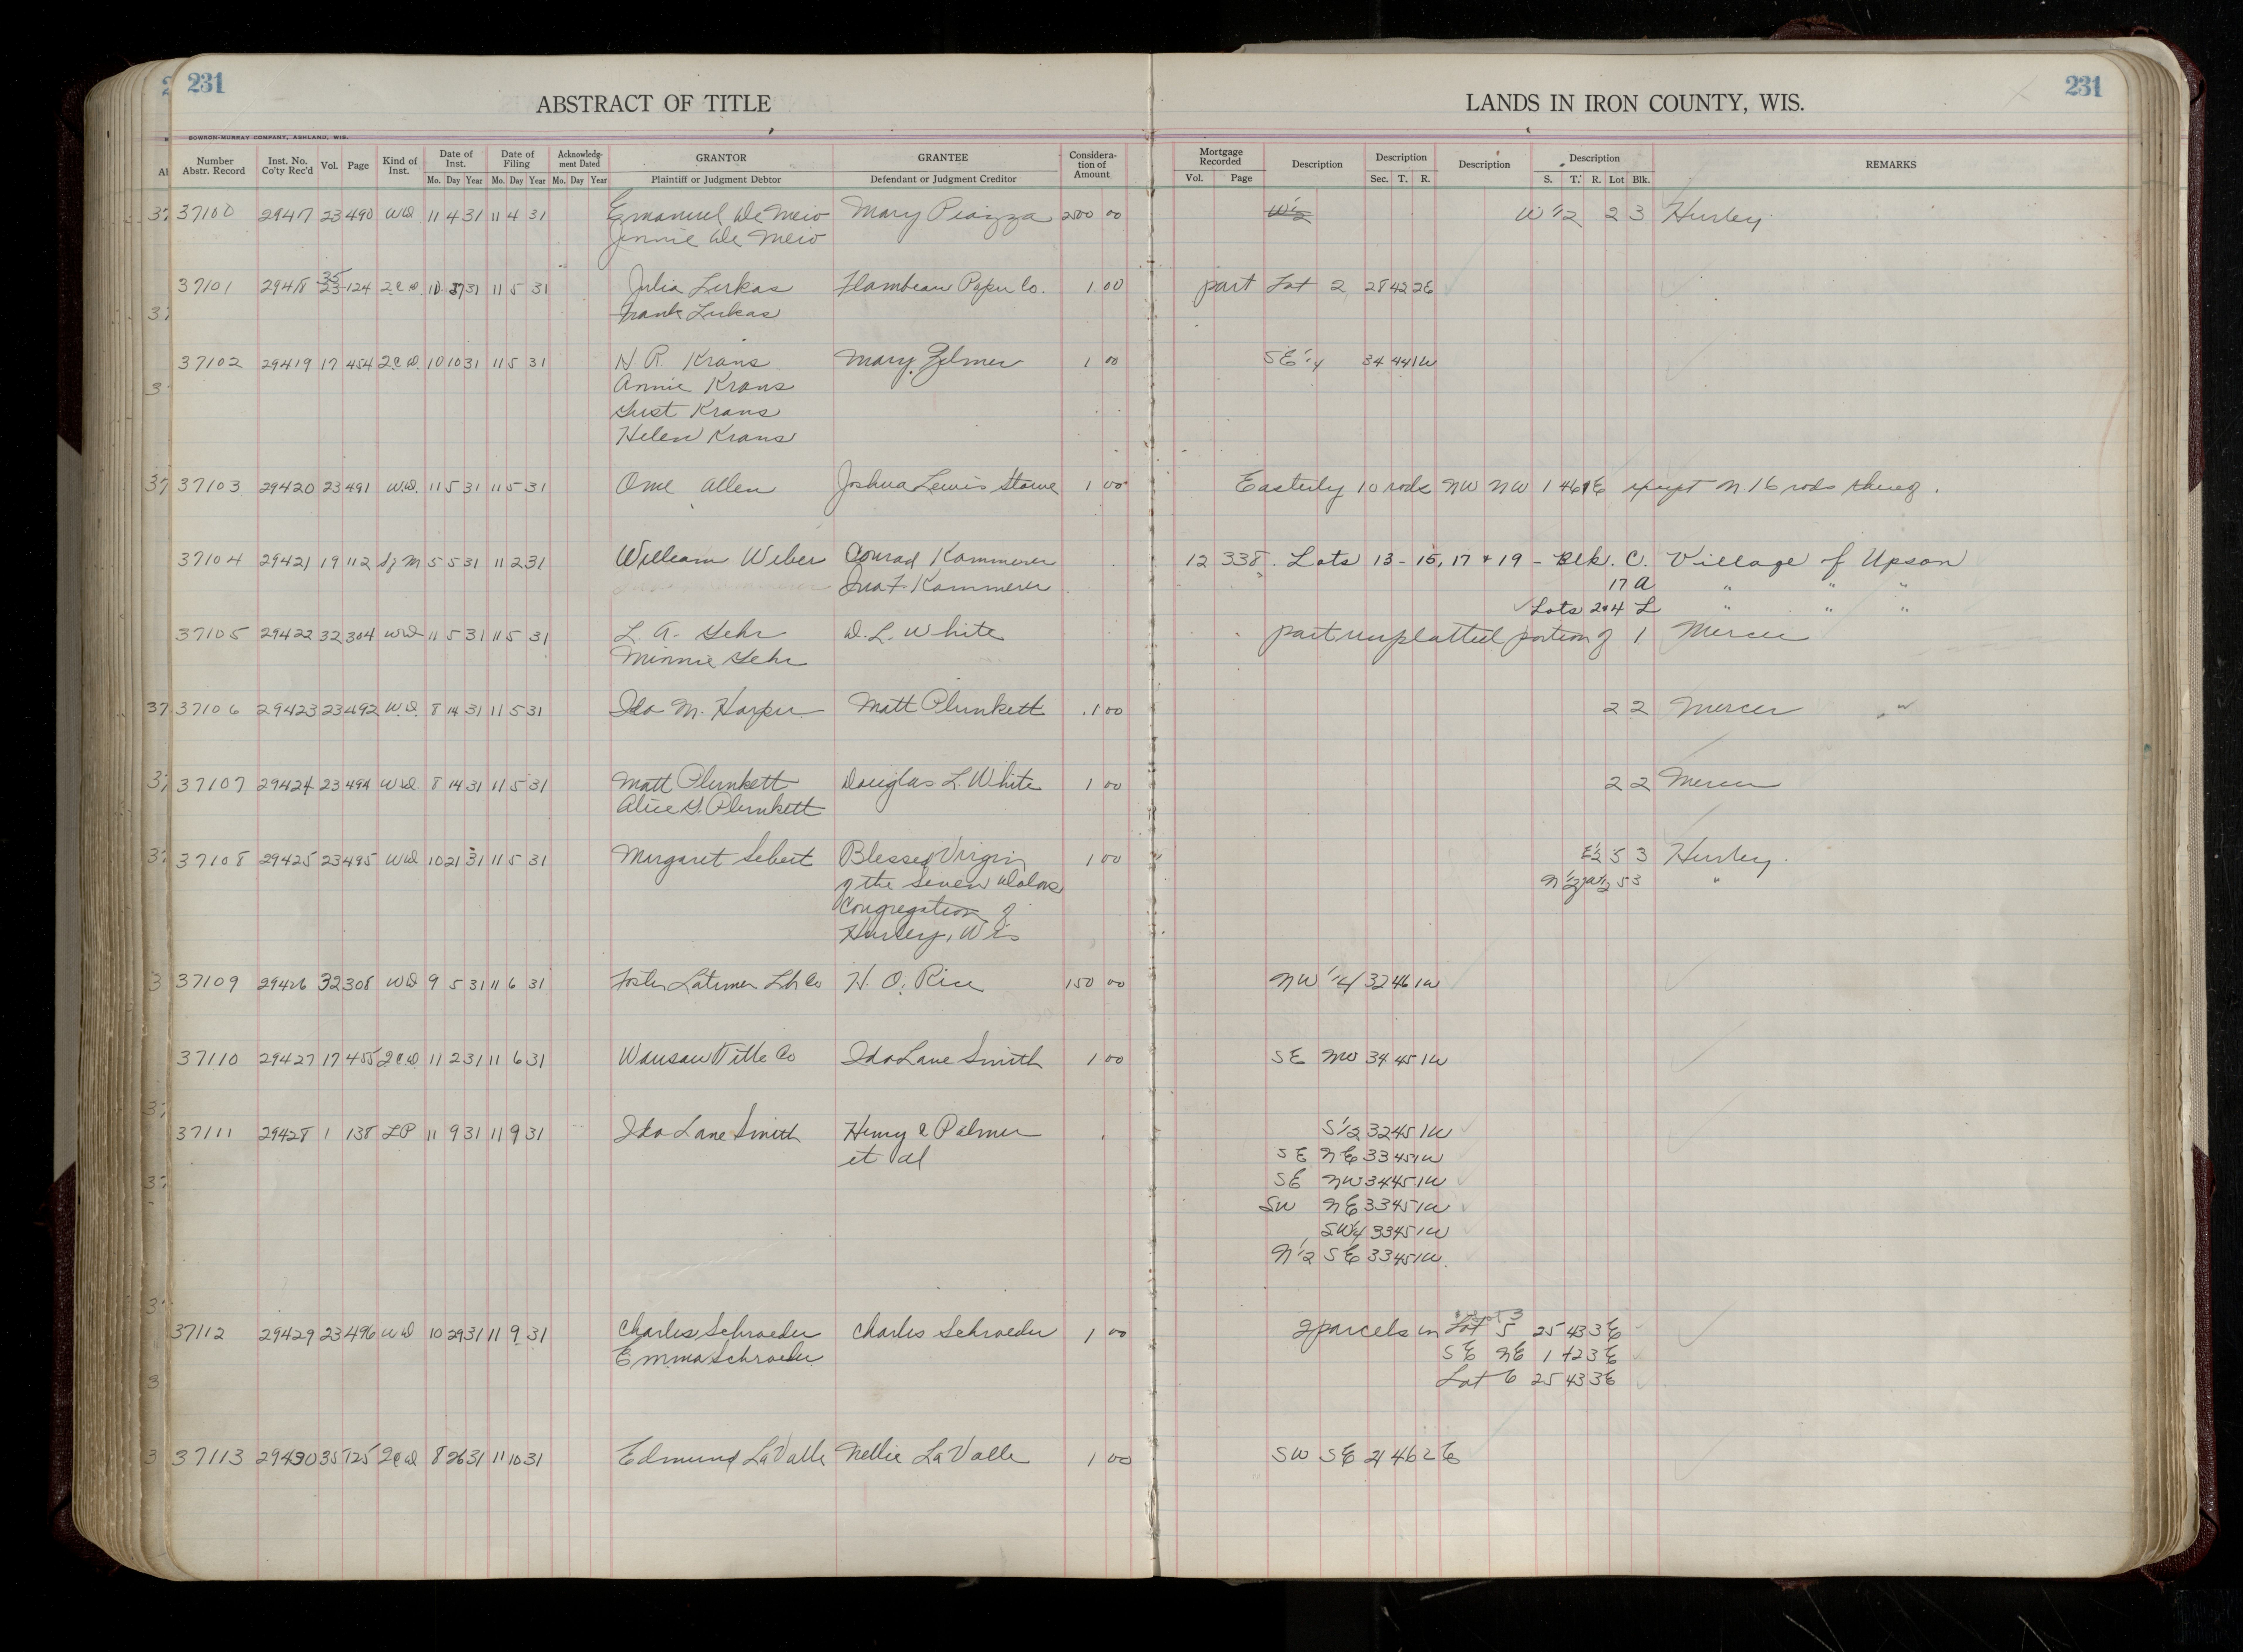 231
ABSTRACT OF TITLE
LANDS IN IRON COUNTY, WIS.
231
BOWRON-MURRAY COMPANY, ASHLAND, WIS.
Number Abstr. Record | Inst. No. Co'ty Rec'd | Vol. | Page | Kind of Inst. | Date of Inst. Mo. Day Year | Date of Filing Mo. Day Year | Acknowledg-ment Dated Mo. Day Year | GRANTOR Plaintiff or Judgment Debtor | GRANTEE Defendant or Judgment Creditor | Considera-tion of Amount | Mortgage Recorded Vol. Page | Description | Description Sec. T. R. | Description | Description S. T. R. Lot Blk. | REMARKS
37100 29417 23 490 WD 11 4 31 11 4 31 Emanuel De Meio Mary Piazza 2500 00 W 1/2 W 1/2 2 3 Hurley
Jennie De Meio
37101 29418 35 23 124 2CD 10 31 11 5 31 Julia Lukas Flambeau Paper Co. 1 00 part Lot 2 28 42 2E
Frank Lukas
37102 29419 17 454 2CD 10 10 31 11 5 31 H R. Krans Mary Zelmer 1 00 SE 1/4 34 44 1W
Annie Krans
Gust Krans
Helen Krans
37103 29420 23 491 W.D. 11 5 31 11 5 31 Ome Allen Joshua Lewis Stowe 1 00 Easterly 10 rods NW NW 1 46 1E except N 16 rods thereof.
37104 29421 19 112 M 5 5 31 11 2 31 William Weber Conrad Kammerer 12 338 Lots 13-15, 17 + 19 - Blk. C. Village of Upson
Kammerer 17 A " " "
Lots 2+4 L " " "
37105 29422 32 304 WD 11 5 31 11 5 31 L. A. Gehr D. L. White part unplatted portion of 1 Mercer
Minnie Gehr
37106 29423 23 492 W.D. 8 14 31 11 5 31 Ida M. Harper Matt Plunkett 1 00 2 2 Mercer
37107 29424 23 494 WD 8 14 31 11 5 31 Matt Plunkett Douglas L. White 1 00 2 2 Mercer
Alice G. Plunkett
37108 29425 23 495 WD 10 21 31 11 5 31 Margaret Sebert Blessed Virgin 1 00 E 1/2 5 3 Hurley.
of the Seven Dolors N 1/2 W 1/2 5 3 "
Congregation of
Hurley, Wis
37109 29426 32 308 WD 9 5 31 11 6 31 Foster Latimer Lbr Co H. O. Rice 150 00 NW 1/4 32 46 1W
37110 29427 17 455 2CD 11 2 31 11 6 31 Wausau Title Co Ida Lane Smith 1 00 SE NW 34 45 1W
37111 29428 1 138 LP 11 9 31 11 9 31 Ida Lane Smith Henry C Palmer S 1/2 32 45 1W
et al SE NE 33 45 1W
SE NW 34 45 1W
SW NE 33 45 1W
SW 1/4 33 45 1W
N 1/2 SE 33 45 1W
37112 29429 23 496 WD 10 29 31 11 9 31 Charles Schroeder Charles Schroeder 1 00 2 parcels in Lot 5 25 43 3E
Emma Schroeder SE NE 1 42 3E
Lot 6 25 43 3E
37113 29430 35 125 2CD 8 26 31 11 10 31 Edmund LaValle Nellie LaValle 1 00 SW SE 21 46 2E